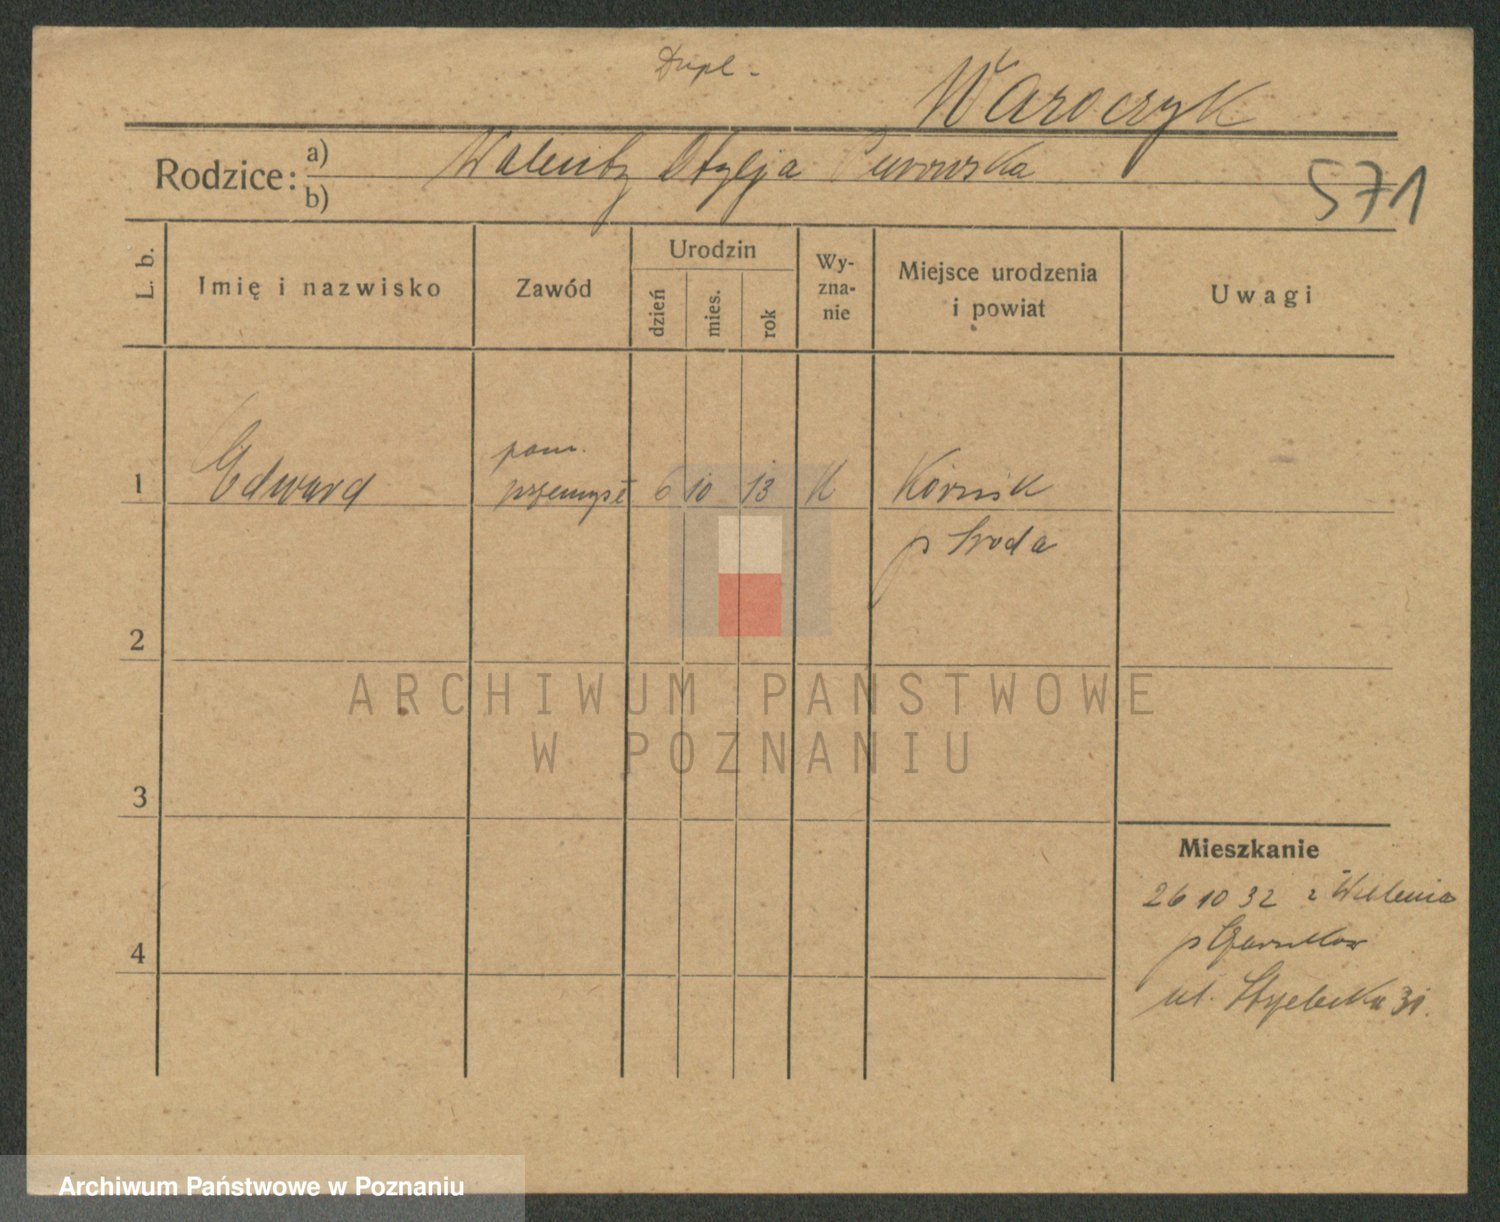 Dupl -
Waroczyk
Rodzice:
a) Walenty Otylja
b)
571
L. b.
Imię i nazwisko
Zawód
Urodzin
dzień
mies.
rok
Wy-
zna-
nie
Miejsce urodzenia
i powiat
Uwagi
pom.
1 Edward przemysł 6 10 13 K Kórnik
p Środa
2
3
4
Mieszkanie
26 10 32 z
p Czarnków
ul. 31.
ARCHIWUM PAŃSTWOWE
W POZNANIU
Archiwum Państwowe w Poznaniu